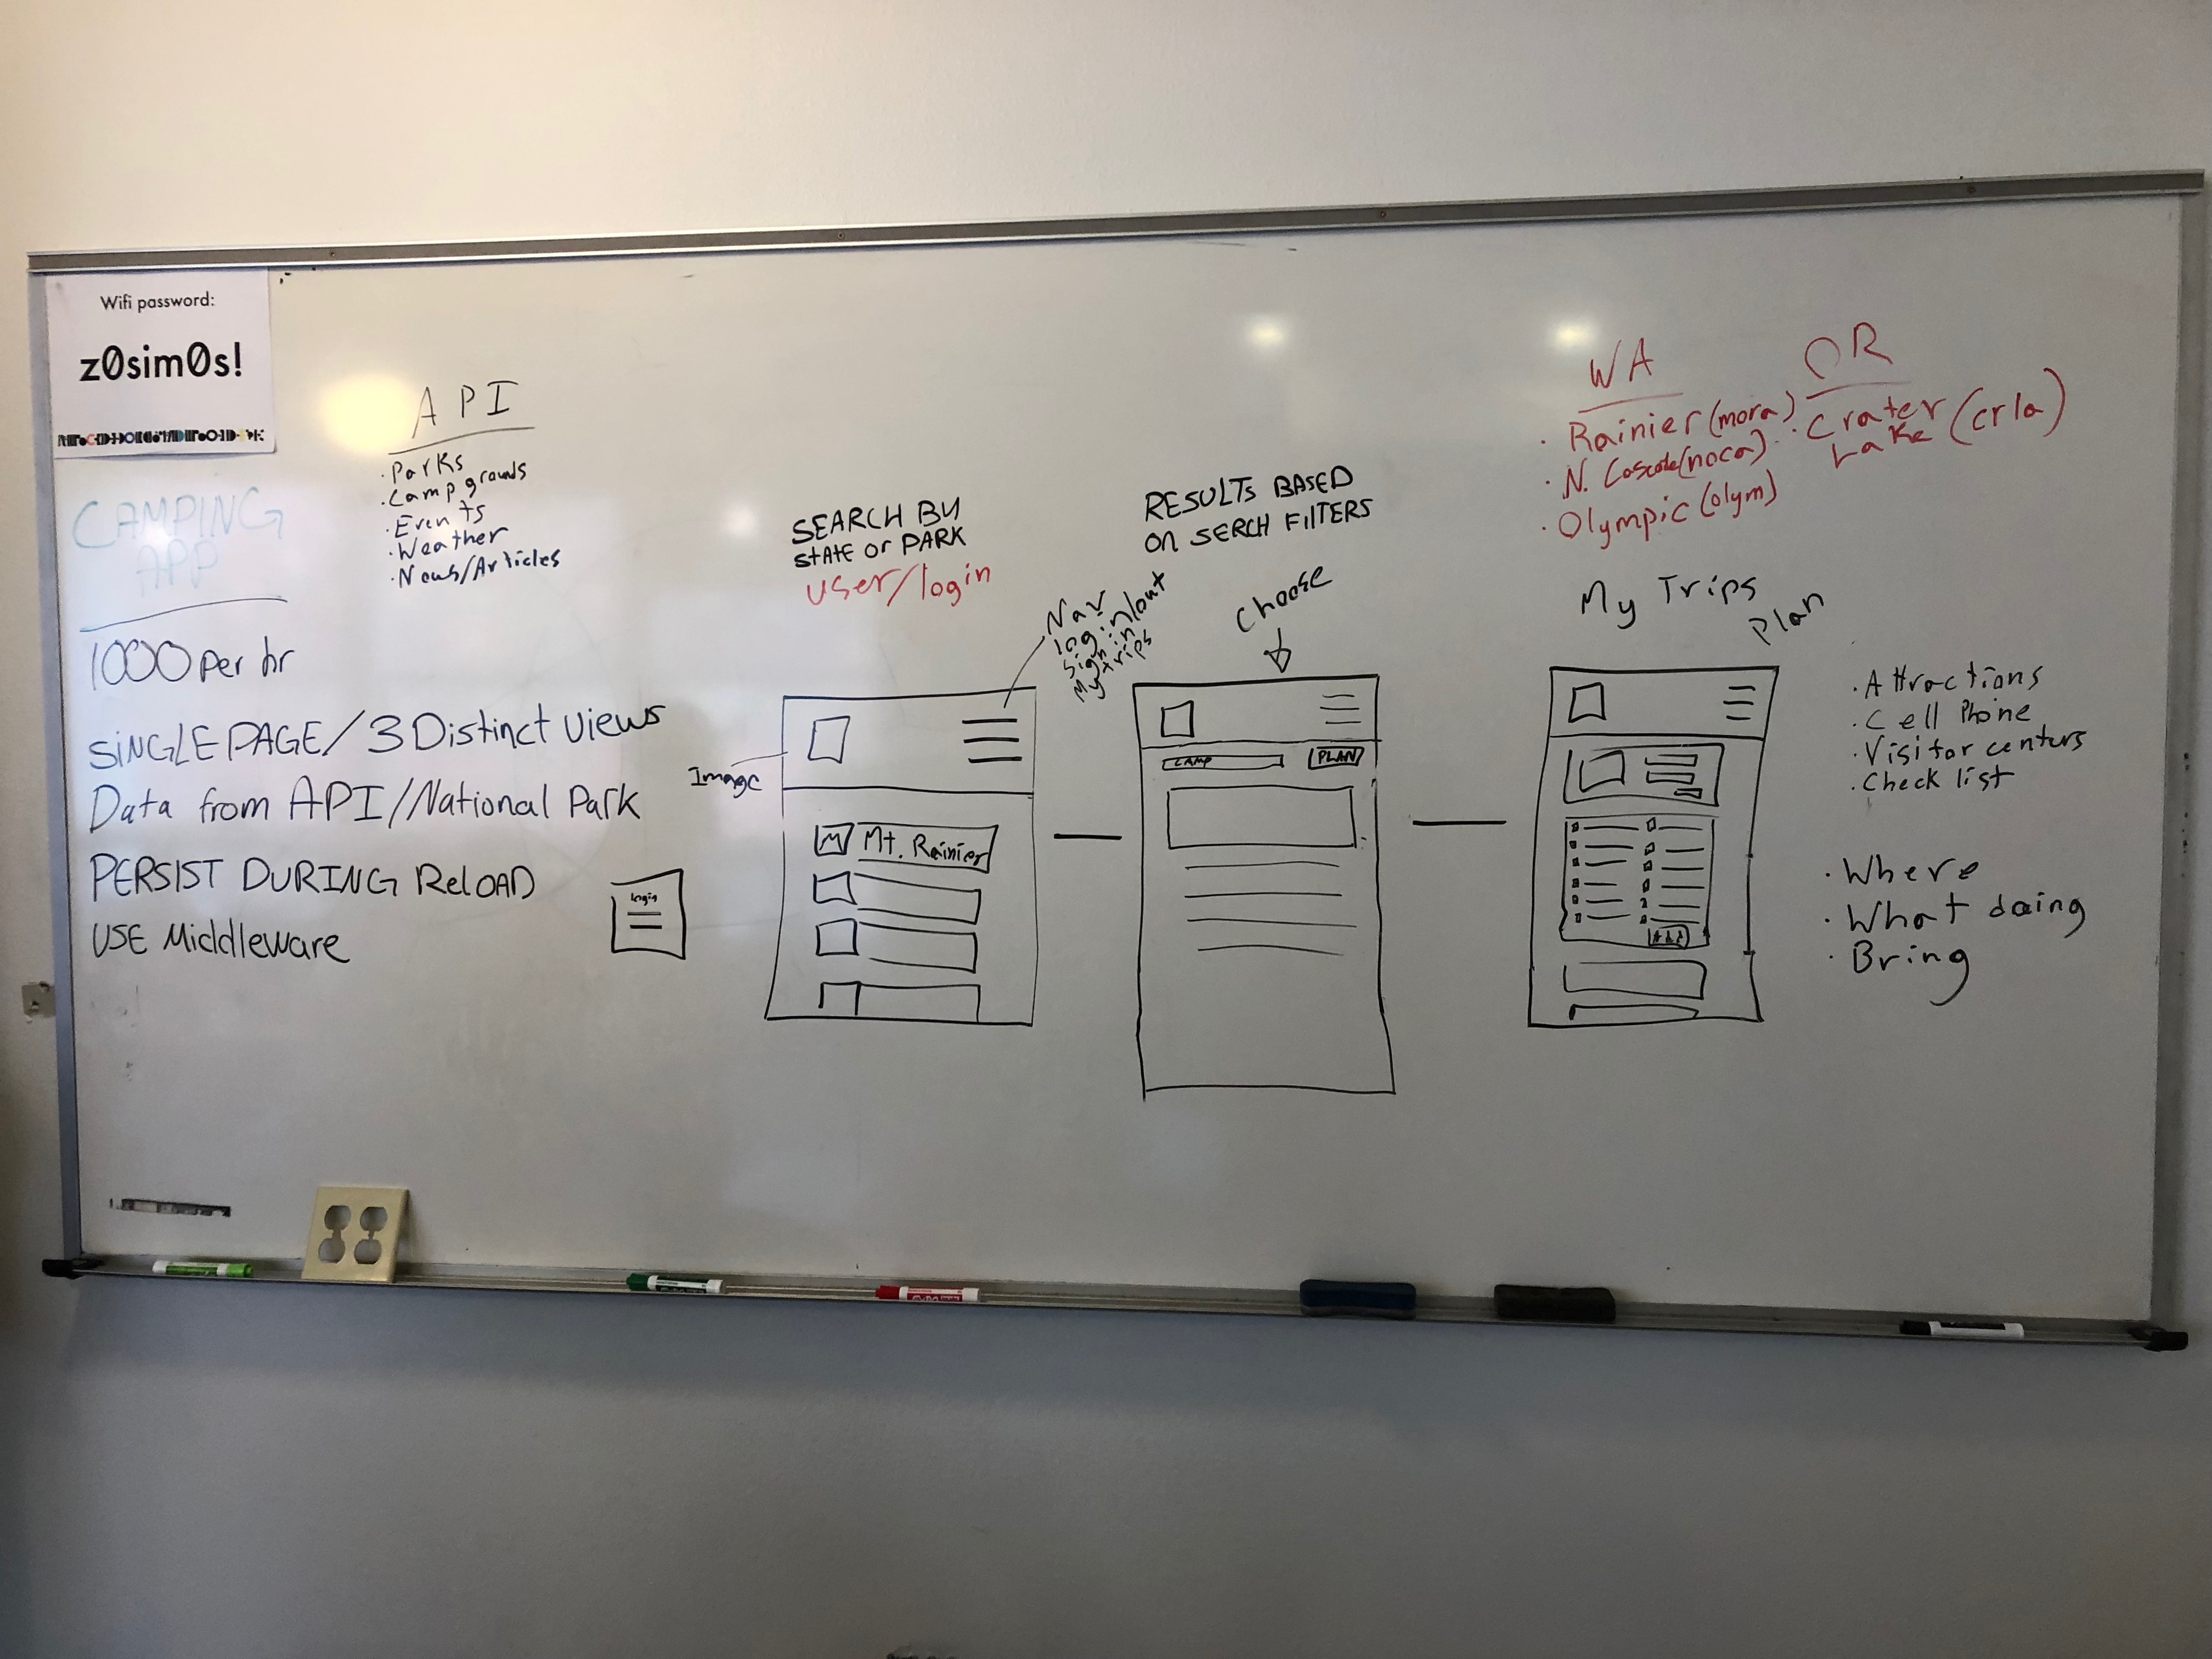 Wifi password:
z0sim0s!
CAMPING
APP
1000 per hr
SINGLE PAGE/3 Distinct views
Data from API/National Park
PERSIST DURING ReLOAD
USE Middleware
API
· Parks
· Campgrounds
· Events
· Weather
· News/Articles
login
SEARCH BY
STATE or PARK
user/login
Nav
log in/out
sign in
My trips
Image
M Mt. Rainier
RESULTS BASED
ON SERCH FILTERS
Choose
CAMP
PLAN
WA
· Rainier (mora)
· N. Cascade (noca)
· Olympic (olym)
OR
· Crater
Lake (crla)
My Trips
Plan
· Attractions
· Cell Phone
· Visitor centers
· Check list
· Where
· What doing
· Bring